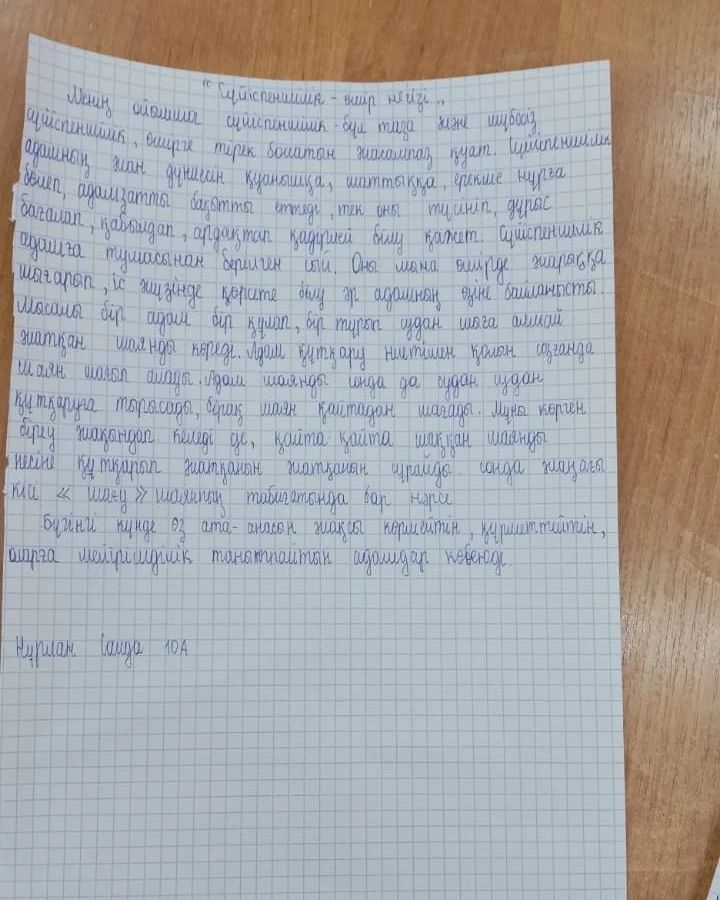 "Сүйіспеншілік - өмір негізі"
Менің ойымша сүйіспеншілік - бұл таза және шүбәсіз
сүйіспеншілік, өмірге тірек болатын жасампаз қуат. Сүйіспеншілік
адамның жан дүниесін қуанышқа, шаттыққа, ерекше нұрға
бөлеп, адамзатты бақытты еттеді, тек оны түсініп, дұрыс
бағалап, қабылдап, ардақтап қадірлей білу қажет. Сүйіспеншілік
адамға тумасынан берілген сый. Оны мына өмірде жарыққа
шығарып, іс жүзінде көрсете білу әр адамның өзіне байланысты.
Мысалы бір адам бір құлап, бір тұрып судан шыға алмай
жатқан шаянды көреді. Адам құтқару ниетімен қолын созғанда
шаян шағып алады. Адам шаянды сонда да судан судан
құтқаруға тырысады, бірақ шаян қайтадан шағады. Мұны көрген
біреу жақындап келеді де, қайта қайта шаққан шаянды
несіне құтқарып жатқанын жатқанын сұрайды. сонда жаңағы
кісі « шағу » шаянның табиғатында бар нәрсе
Бүгінгі күнде өз ата-анасын жақсы көрмейтін, құрметтейтін,
оларға мейірімділік танытпайтын адамдар көбеюде.
Нұрлан Саида 10А